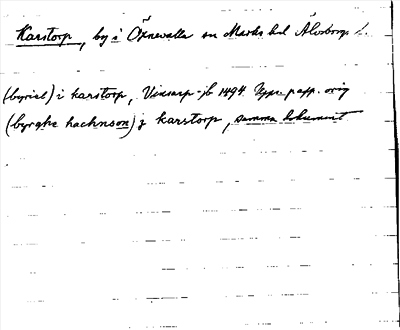 Karstorp, by i Öxnevalla sn Marks hd Älvsborgs l.
(byrial) i karstorp, Vinsarp-jb 1494 Upps. papp. orig
(byrghe hachnson) j karstorp, samma dokument